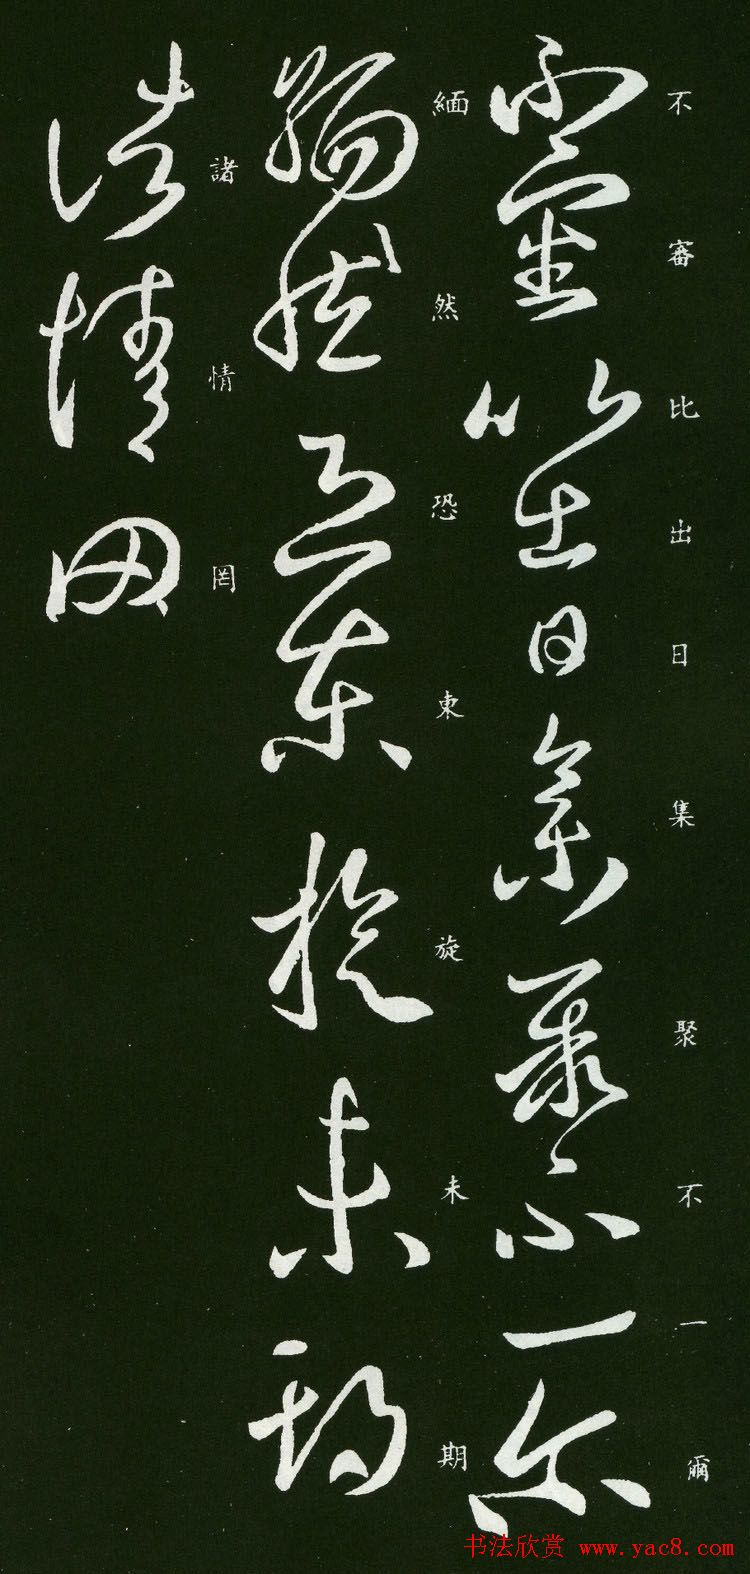 不審比出日集聚不一爾
緬然恐東旋未期
諸情罔
书法欣赏 www.yac8.com